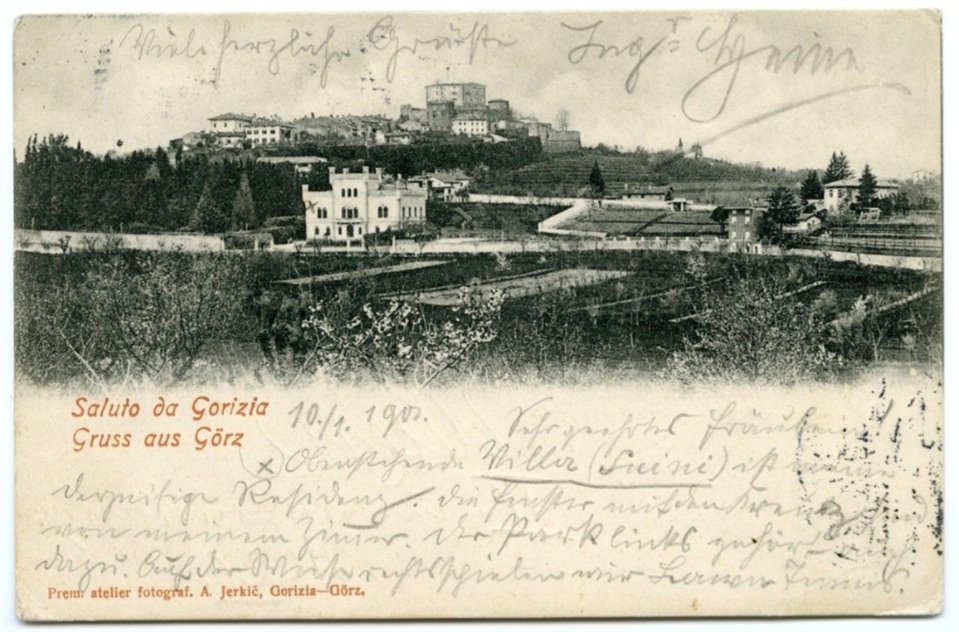 Viele herzliche Grüsse Ingr Heine
Saluto da Gorizia
Gruss aus Görz
10./1. 190
Sehr geehrtes Fräulein!
× Obenstehende Villa (Suini) ist meine
derzeitige Residenz. Die Fenster mit den Kreuz sind
von meinem Zimer. Der Park links gehört auch
dazu. Auf der Wiese rechts spielen wir Lawn Tennis.
Prem. atelier fotograf. A. Jerkič, Gorizia—Görz.